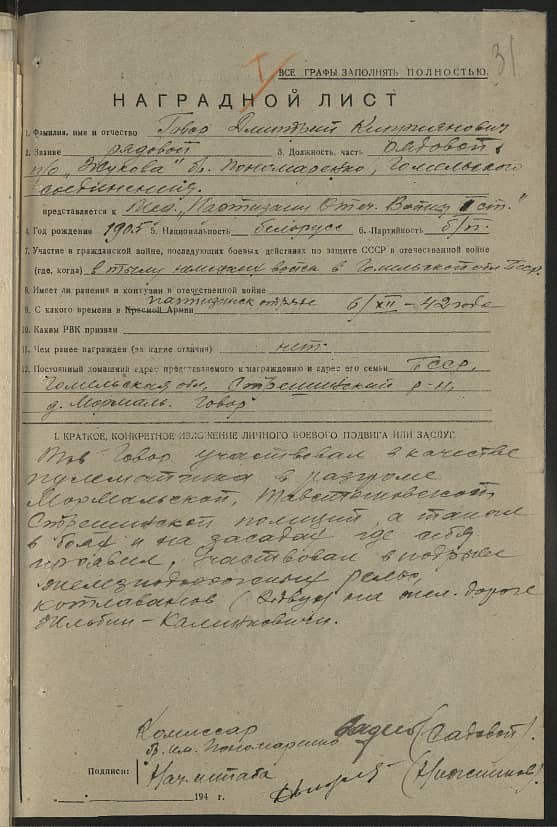 31
ВСЕ ГРАФЫ ЗАПОЛНЯТЬ ПОЛНОСТЬЮ.
НАГРАДНОЙ ЛИСТ
1. Фамилия, имя и отчество Говор Дмитрий Киприянович
2. Звание рядовой 3. Должность, часть рядовой
п/о "Жукова" бр. Пономаренко, Гомельского
соединения.
представляется к Мед. "Партизану Отеч. Войны II ст."
4. Год рождения 1905 5. Национальность белорусс 6. Партийность б/п
7. Участие в гражданской войне, последующих боевых действиях по защите СССР и отечественной войне
(где, когда) в тылу немецких войск в Гомельской обл. БССР.
8. Имеет ли ранения и контузии в отечественной войне
партизанск отряде
9. С какого времени в Красной Армии 6/XII-42 года
10. Каким РВК призван
11. Чем ранее награжден (за какие отличия) нет
12. Постоянный домашний адрес представляемого к награждению и адрес его семьи БССР,
Гомельская обл, Стрешинский р-н,
д. Мормаль. Говор
I. КРАТКОЕ, КОНКРЕТНОЕ ИЗЛОЖЕНИЕ ЛИЧНОГО БОЕВОГО ПОДВИГА ИЛИ ЗАСЛУГ
Тов Говор участвовал в качестве
пулеметчика в разгроме
Мормальской,
Стрешинской полиций, а также
в боях и на засадах где себя
проявил, участвовал в подрыве
железнодорожных рельс,
(двух) на жел. дороге
Жлобин-Калинковичи.
Комиссар
бр. им. Пономаренко (Садовой).
Подписи: Нач. штаба
194 г.